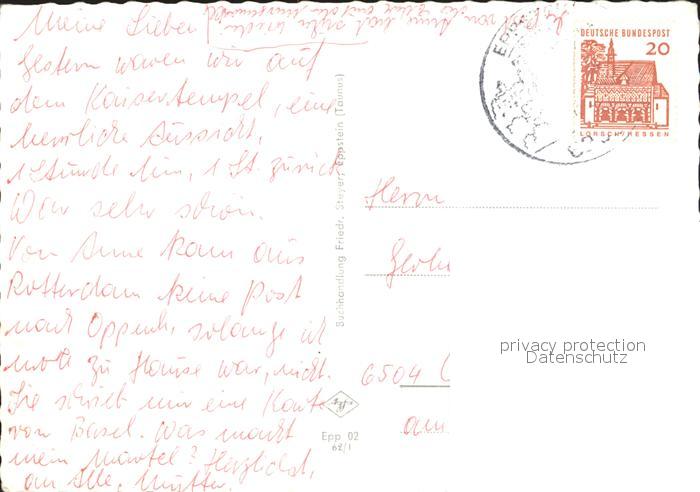 Meine Lieben!
Gestern waren wir auf
dem Kaisertempel, eine
herrliche Aussicht.
1 Stunde hin, 1 St. zurück
War sehr schön.
Von Anne kam aus
Rotterdam keine Post
nach Oppenh, solange ich
noch zu Hause war, nicht.
Sie schrieb mir eine Karte
von Basel. Was macht
mein Mantel? Herzlichst,
an Alle, Mutter.
Buchhandlung Friedr. Steyer, Eppstein (Taunus)
Epp 02
62/1
DEUTSCHE BUNDESPOST
20
LORSCH/HESSEN
Herrn
Gerh
6504
am
privacy protection
Datenschutz